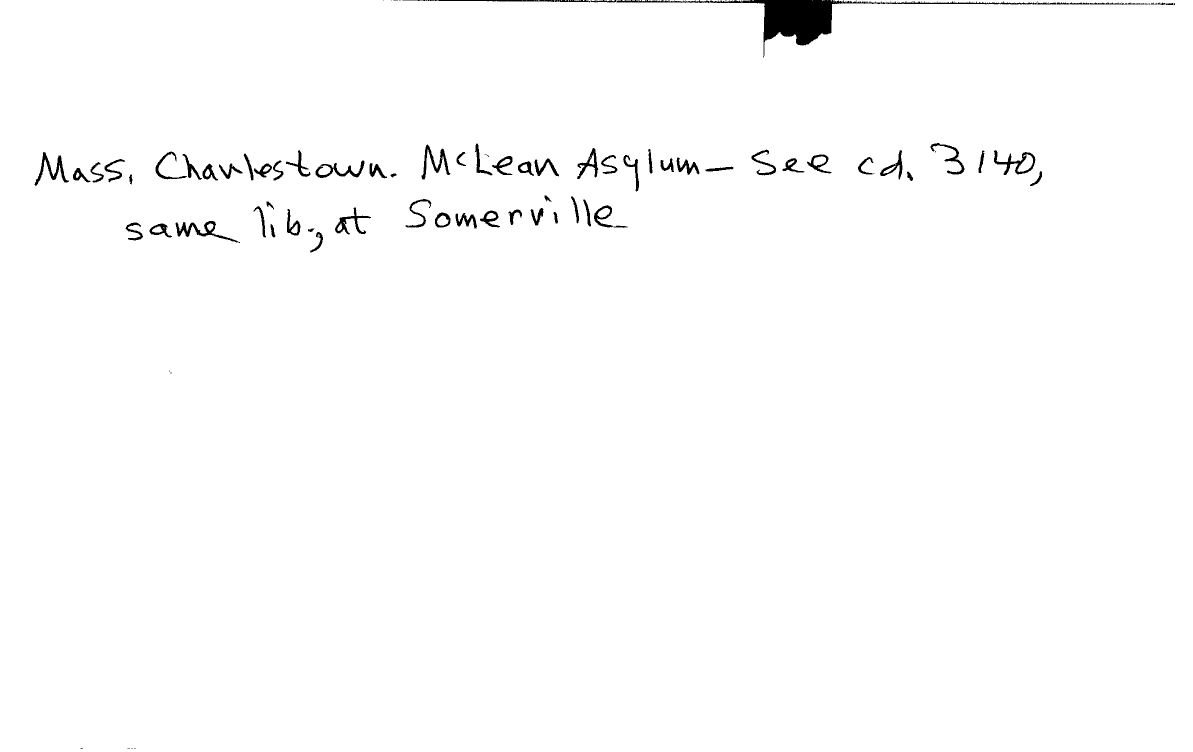 Mass. Charlestown. McLean Asylum – See cd. 3140,
same lib., at Somerville